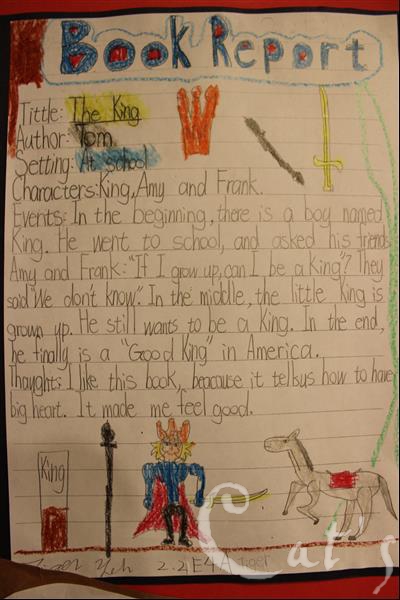 Book Report
Tittle: The King
Author: Tom
Setting: At school
Characters: King, Amy and Frank.
Events: In the beginning, there is a boy named
King. He went to school, and asked his friends
Amy and Frank: "If I grow up, can I be a King"? They
said "We don't know." In the middle, the little King is
grown up. He still wants to be a King. In the end,
he finally is a "Good King" in America.
Thought: I like this book, beacause it tells us how to have
big heart. It made me feel good.
King
Yeh 2.2 E4A Tiger
Cat's